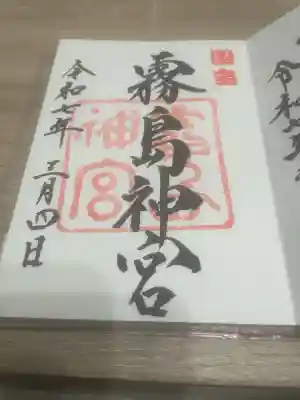 国宝
霧島神宮
霧島神宮
令和七年 三月四日
令和七年